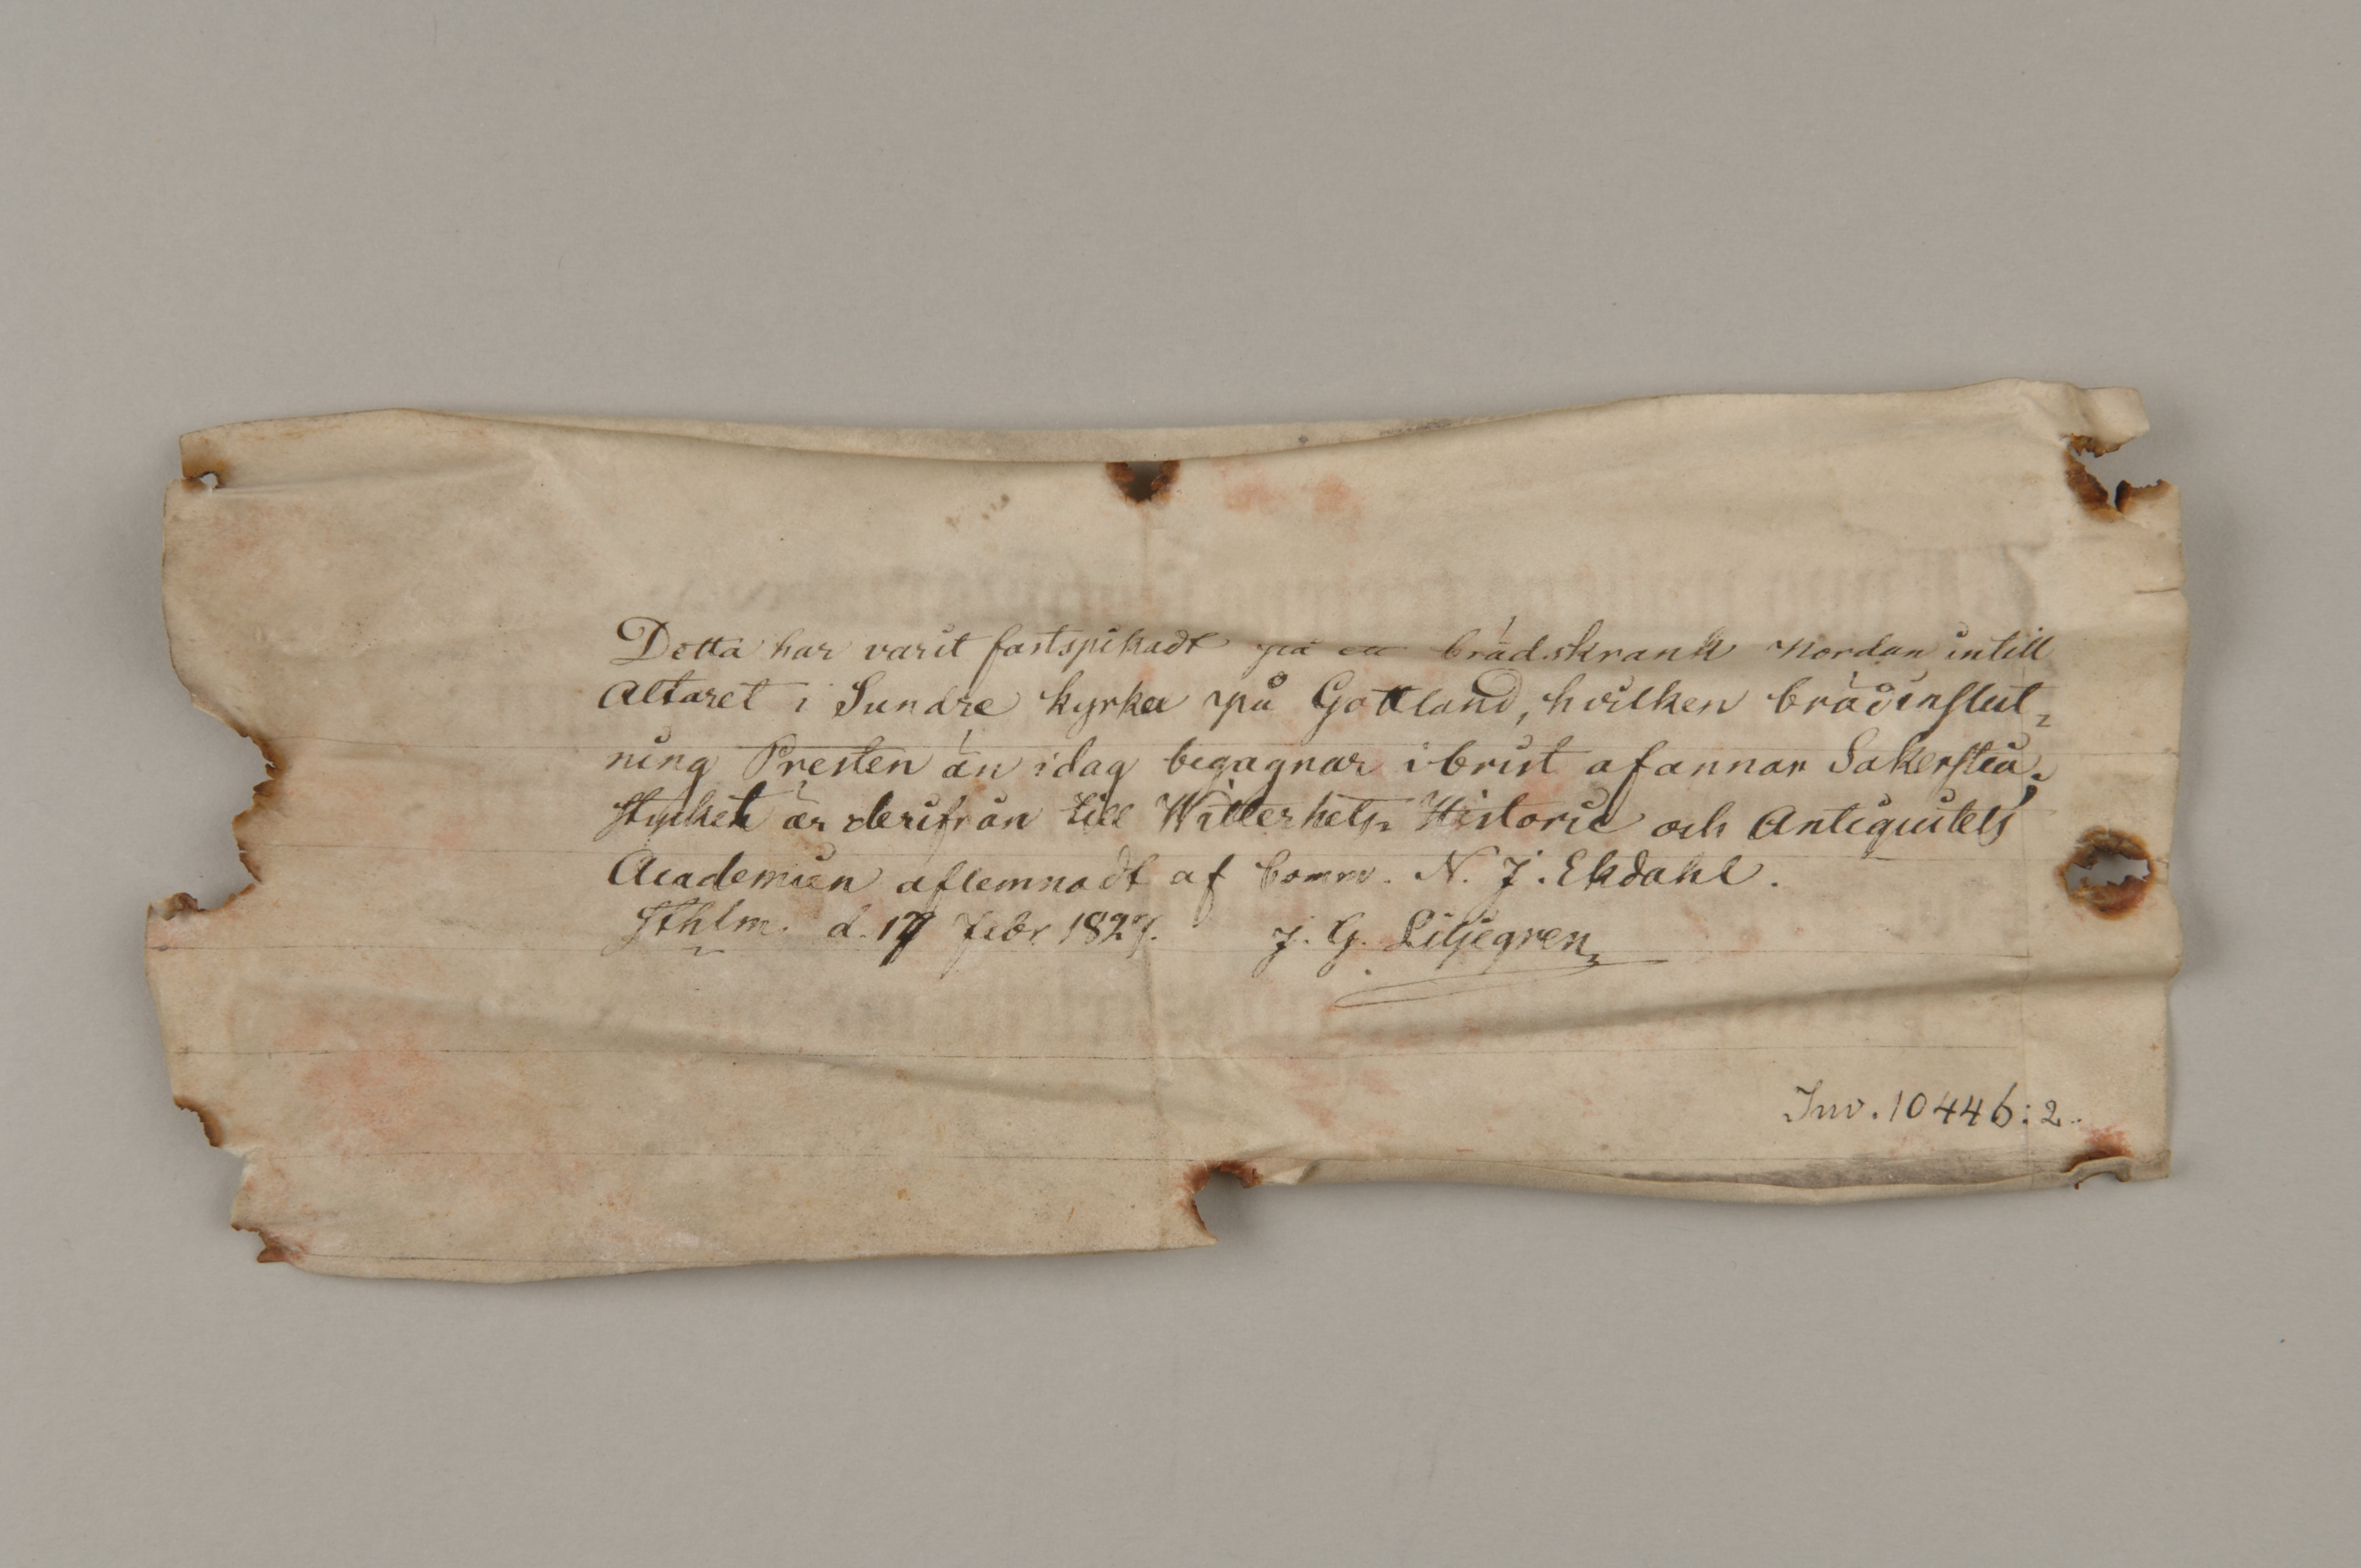 Detta har varit fastspikadt på en brädskrank Nordan intill
Altaret i Sundre kyrka på Gottland, hvilken brädinslut-
ning Presten än idag begagnar i brist af annan Sakerstia;
stycket är derifrån till Witterhets- Historie och Antiquitets
Academien aflemnadt af Comm. N. J. Ekdahl.
Sthlm. d. 17 Febr 1827. J. G. Liljegren
Inv. 10446:2.